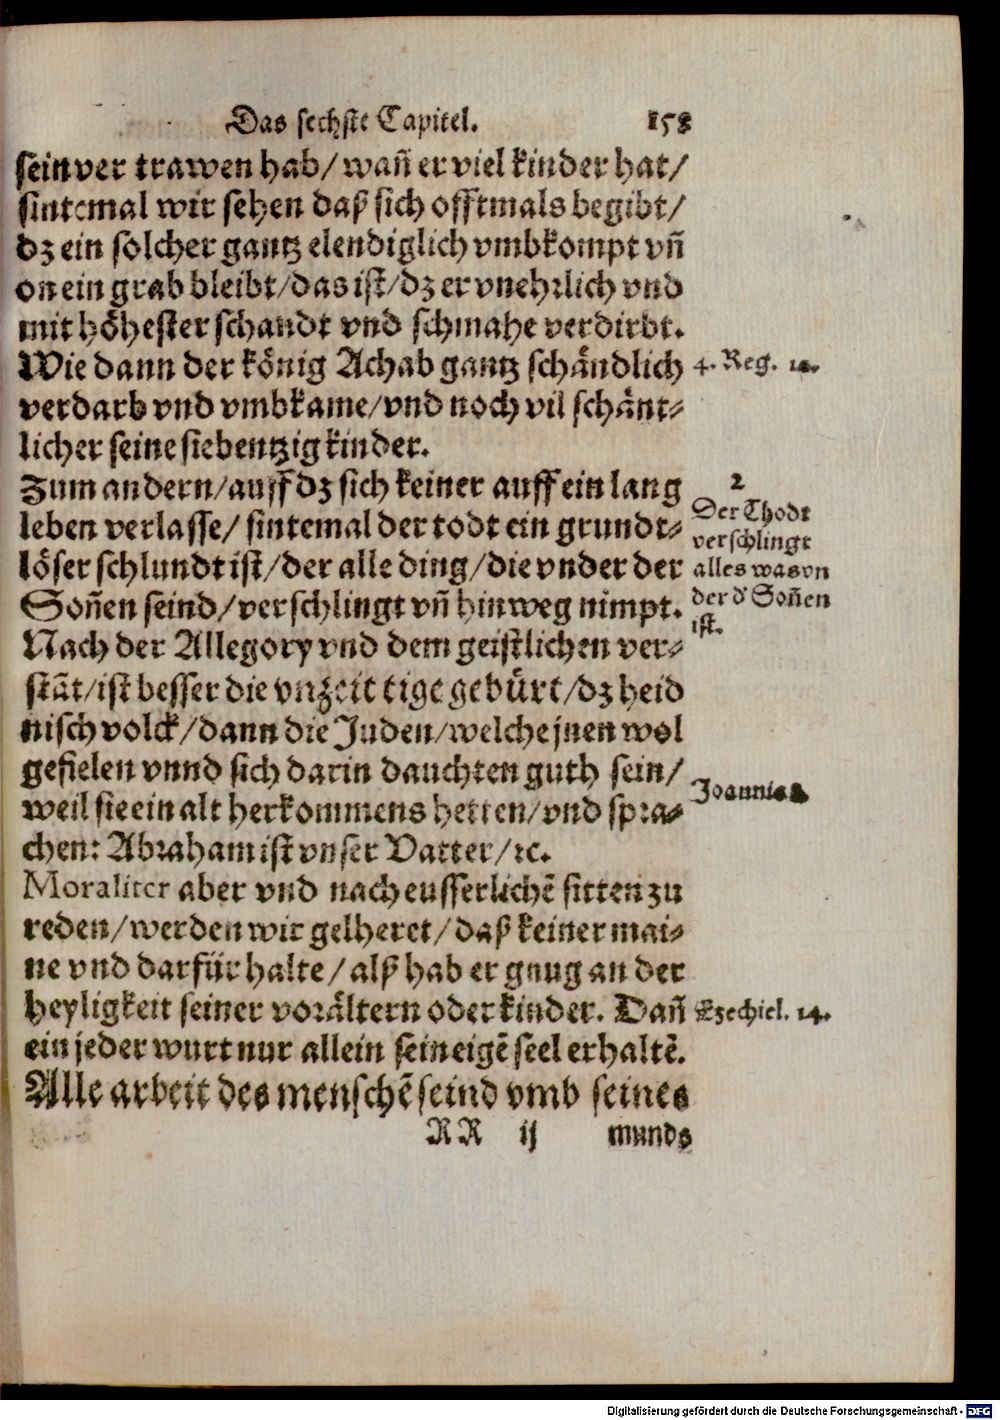 Das sechste Capitel. 158
sein ver trawen hab/ wañ er viel kinder hat/
sintemal wir sehen daß sich offtmals begibt/
dz ein solcher gantz elendiglich vmbkompt vñ
on ein grab bleibt/das ist/dz er vnehrlich vnd
mit höhester schandt vnd schmahe verdirbt.
Wie dann der könig Achab gantz schändlich
4. Reg. 10.
verdarb vnd vmbkame/vnd noch vil schänt⸗
licher seine siebentzig kinder.
Zum andern/auff dz sich keiner auff ein lang
leben verlasse/ sintemal der todt ein grundt⸗
löser schlundt ist/der alle ding/die vnder der
Soñen seind/verschlingt vñ hinweg nimpt.
2
Der Thodt
verschlingt
alles was vn
der d' Soñen
ist.
Nach der Allegory vnd dem geistlichen ver⸗
stāt/ist besser die vnzeit tige gebürt/dz heid
nisch volck/dann die Juden/welche jnen wol
gefielen vnnd sich darin dauchten guth sein/
weil sie ein alt herkommens hetten/vnd spra⸗
chen: Abraham ist vnser Vatter/ꝛc.
Joannis 8.
Moraliter aber vnd nach eusserlichē sitten zu
reden/werden wir gelheret/daß keiner mai⸗
ne vnd darfür halte/ alß hab er gnug an der
heyligkeit seiner vorältern oder kinder. Dañ
Ezechiel. 14.
ein jeder wurt nur allein sein eigē seel erhaltē.
Alle arbeit des menschē seind vmb seines
RR ij munds
Digitalisierung gefördert durch die Deutsche Forschungsgemeinschaft - DFG